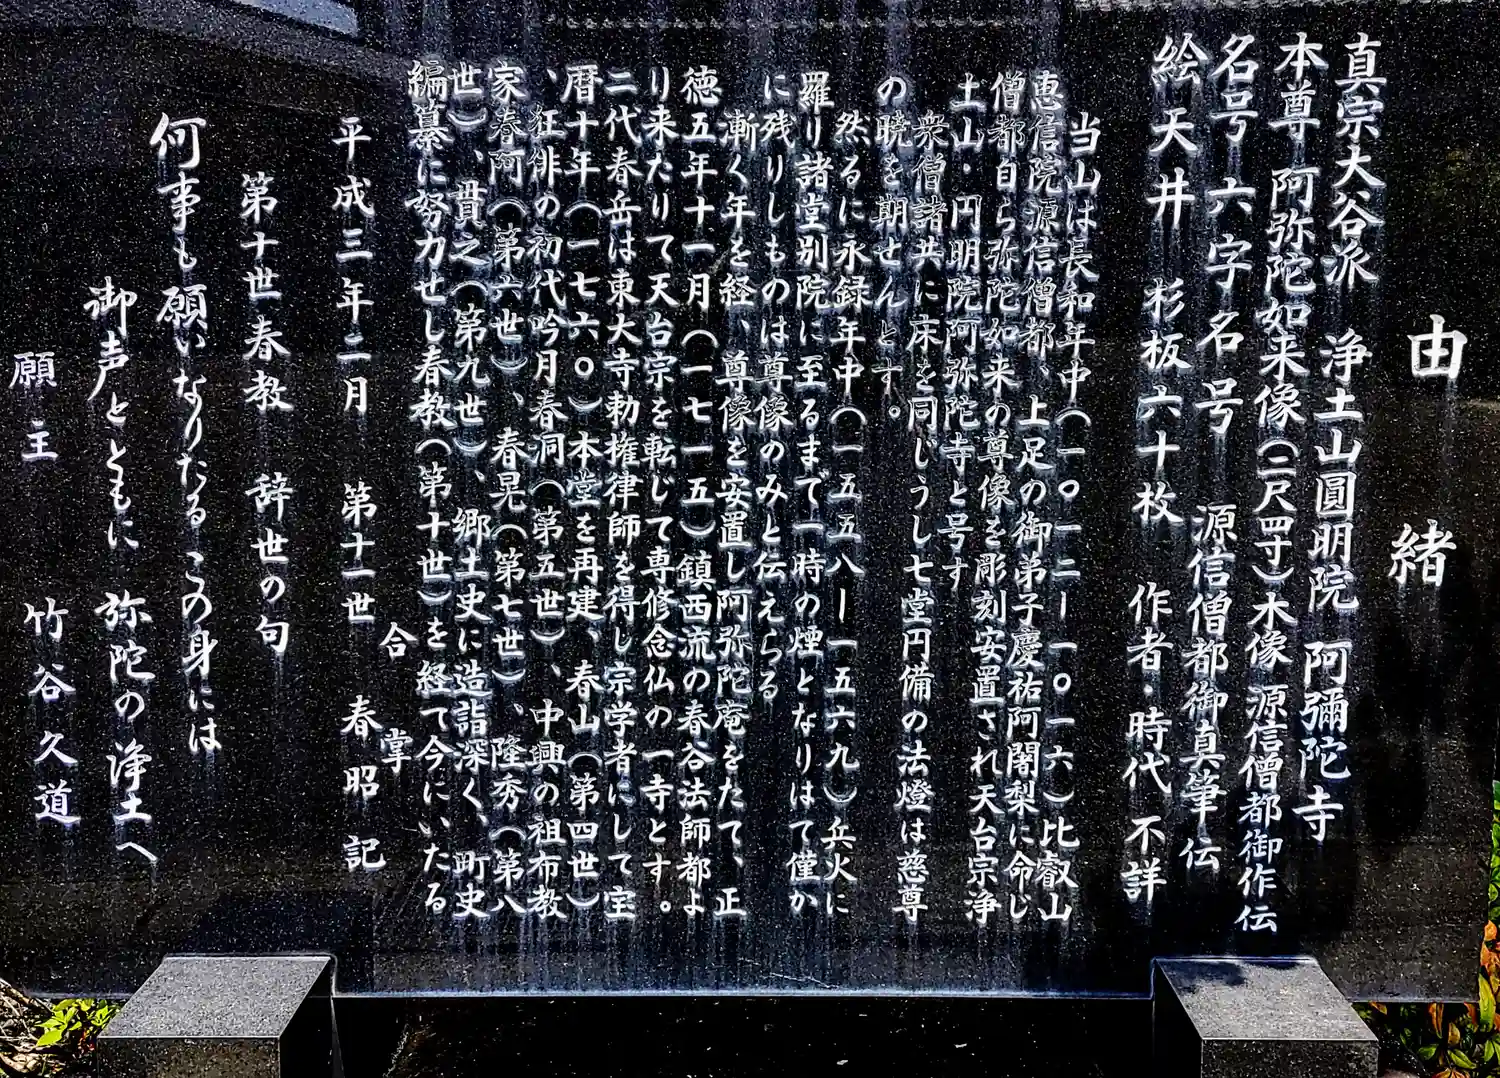 由緒
真宗大谷派 浄土山圓明院 阿彌陀寺
本尊 阿弥陀如来像(二尺四寸)木像 源信僧都御作伝
名号 六字名号 源信僧都御真筆伝
絵天井 杉板六十枚 作者・時代不詳
当山は長和年中(一〇一二ー一〇一六)比叡山
恵信院源信僧都、上足の御弟子慶祐阿闍梨に命じ
僧都自ら弥陀如来の尊像を彫刻安置され天台宗浄
土山・円明院阿弥陀寺と号す
衆僧諸共に床を同じうし七堂円備の法燈は慈尊
の暁を期せんとす。
然るに永録年中(一五五八ー一五六九)兵火に
羅り諸堂別院に至るまで一時の煙となりはて僅か
に残りしものは尊像のみと伝えらる
漸く年を経、尊像を安置し阿弥陀庵をたて、正
徳五年十一月(一七一五)鎮西流の春谷法師都よ
り来たりて天台宗を転じて専修念仏の一寺とす。
二代春岳は東大寺勅権律師を得し宗学者にして宝
暦十年(一七六〇)本堂を再建、春山(第四世)
、狂俳の初代吟月春洞(第五世)、中興の祖布教
家春阿(第六世)、春晃(第七世)、隆秀(第八
世)、貫之(第九世)、郷土史に造詣深く、町史
編纂に努力せし春教(第十世)を経て今にいたる
合掌
平成三年二月 第十一世 春昭記
第十世春教 辞世の句
何事も願いなりたるこの身には
御声とともに 弥陀の浄土へ
願主 竹谷久道